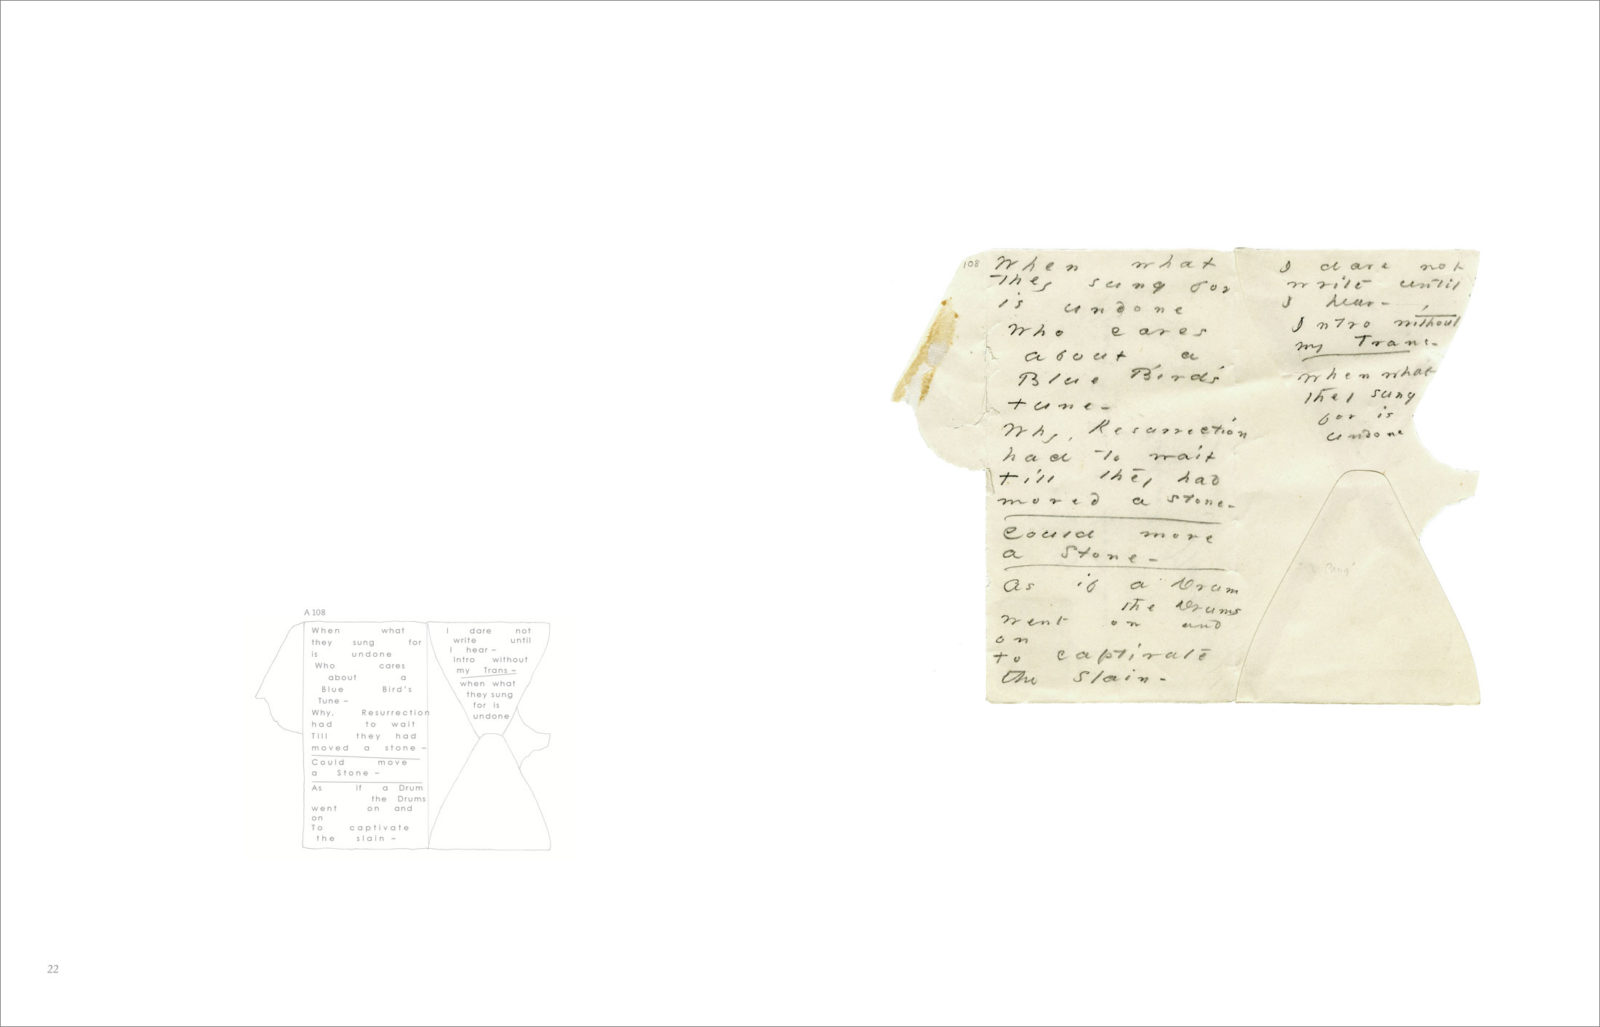 A 108
When what
they sung for
is undone
Who cares
about a
Blue Bird's
Tune –
Why, Resurrection
had to wait
Till they had
moved a stone –
Could move
a Stone –
As if a Drum
the Drums
went on and
on
To captivate
the slain –
I dare not
write until
I hear –
Intro without
my Trans –
when what
they sung
for is
undone
22
108
When what
they sung for
is undone
Who cares
about a
Blue Bird's
Tune –
Why, Resurrection
had to wait
Till they had
moved a stone –
Could move
a Stone –
As if a Drum
the Drums
went on and
on
To captivate
the slain –
I dare not
write until
I hear –
Intro without
my Trans –
When what
they sung
for is
undone